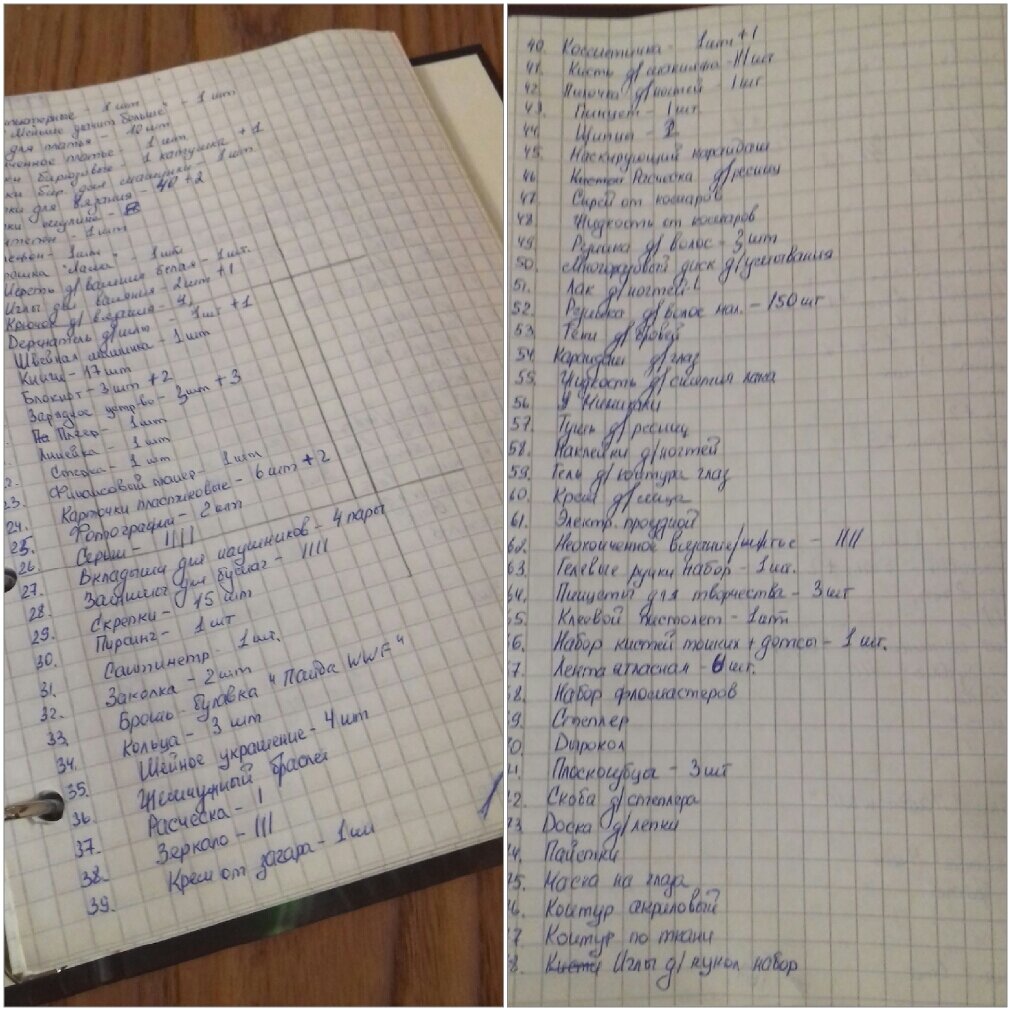 - 1 шт
"Меньше значит больше" - 1 шт
для платья - 10 шт
платье - 1 шт
бирюзовые - 1 катушка + 1
бир. для машинки - 1 шт
для вязания - 40 + 2
- 1 шт
- 1 шт
"Лама" - 1 шт
Шерсть д/валяния белая - 1 шт.
Иглы для валяния - 2 шт + 1
Крючок д/вязания - 9
Держатель д/игл - 1 шт + 1
Швейная машинка - 1 шт
Книги - 17 шт
Блокнот - 3 шт + 2
Зарядное устр-во - 3 шт + 3
Плеер - 1 шт
Линейка - 1 шт
2. Стерка - 1 шт
23. Финансовый планер - 1 шт
24. Карточки пластиковые - 6 шт + 2
25. Фотографии - 2 шт
26. Серьги - IIII
27. Вкладыши для наушников - 4 пары
28. Зажимы для бумаг - IIII
29. Скрепки - 15 шт
30. Пирсинг - 1 шт
31. Сантиметр - 1 шт.
32. Заколка - 2 шт
33. Брошь-булавка "Панда WWF"
34. Кольца - 3 шт
35. Шейное украшение - 4 шт
36. Жемчужный браслет
37. Расческа - 1
38. Зеркало - III
39. Крем от загара - 1 шт
40. Косметичка - 1 шт + 1
41. Кисть д/макияжа - III шт
42. Пилочка д/ногтей - 1 шт
43. Пинцет - 1 шт
44. Щипцы -
45. Маскирующий карандаш
46. Расческа д/ресниц
47. Спрей от комаров
48. Жидкость от комаров
49. Резинка д/волос - 3 шт
50. Многоразовый диск д/умывания
51. Лак д/ногтей
52. Резинка д/волос мал. - 150 шт
53. Тени д/бровей
54. Карандаш д/глаз
55. Жидкость д/снятия лака
56. Ниминоки
57. Тушь д/ресниц
58. Наклейки д/ногтей
59. Гель д/контура глаз
60. Крем д/лица
61. Электр. проездной
62. Неоконченное вязание/шитье - IIII
63. Гелевые ручки набор - 1 шт.
64. Пинцеты для творчества - 3 шт
65. Клеевой пистолет - 1 шт
66. Набор кистей тонких + дотсы - 1 шт.
67. Лента атласная - 6 шт.
68. Набор фломастеров
69. Степлер
70. Дырокол
71. Плоскогубцы - 3 шт
72. Скоба д/степлера
73. Доска д/лепки
74. Пайетки
75. Маска на глаза
76. Контур акриловый
77. Контур по ткани
78. Иглы д/кукол набор